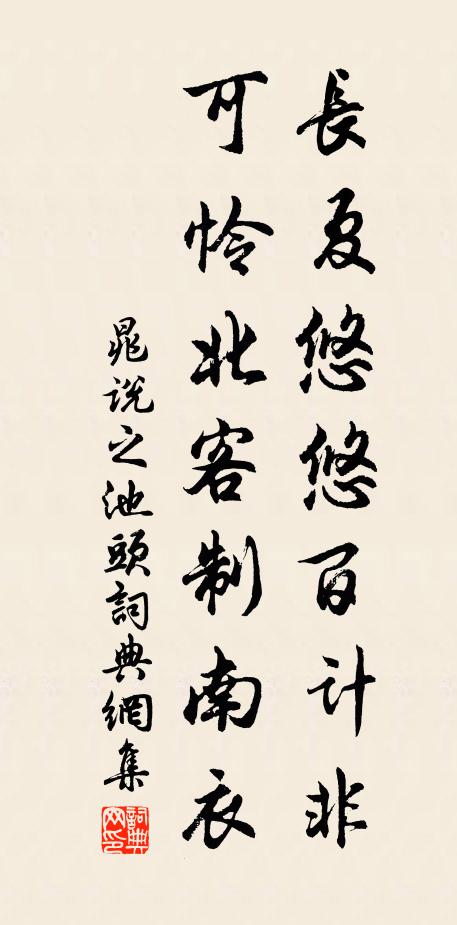 長夏悠悠百計非
可憐北客制南衣
晁說之池頭詞典網集
詞典
网印